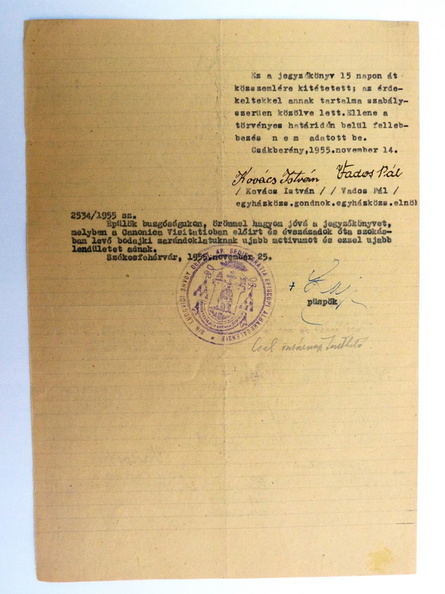 Ez a jegyzőkönyv 15 napon át
közszemlére kitétetett; az érde-
keltekkel annak tartalma szabály-
szerüen közölve lett. Ellene a
törvényes határidőn belül felleb-
bezés n e m adatott be.
Csákberény, 1955. november 14.
Kovács István Vados Pál
/ Kovács István / / Vados Pál /
egyházközs.gondnok.egyházközs.elnök
2534/1955 sz.
Épülök buzgóságukon, örömmel hagyom jóvá a jegyzőkönyvet,
melyben a Canonica Visitatioban előirt és évszázadok óta szokás-
ban levő bodajki zarándoklatuknak ujabb motivumot és ezzel ujabb
lendületet adnak.
Székesfehérvár, 1955. november 25.
+
püspök